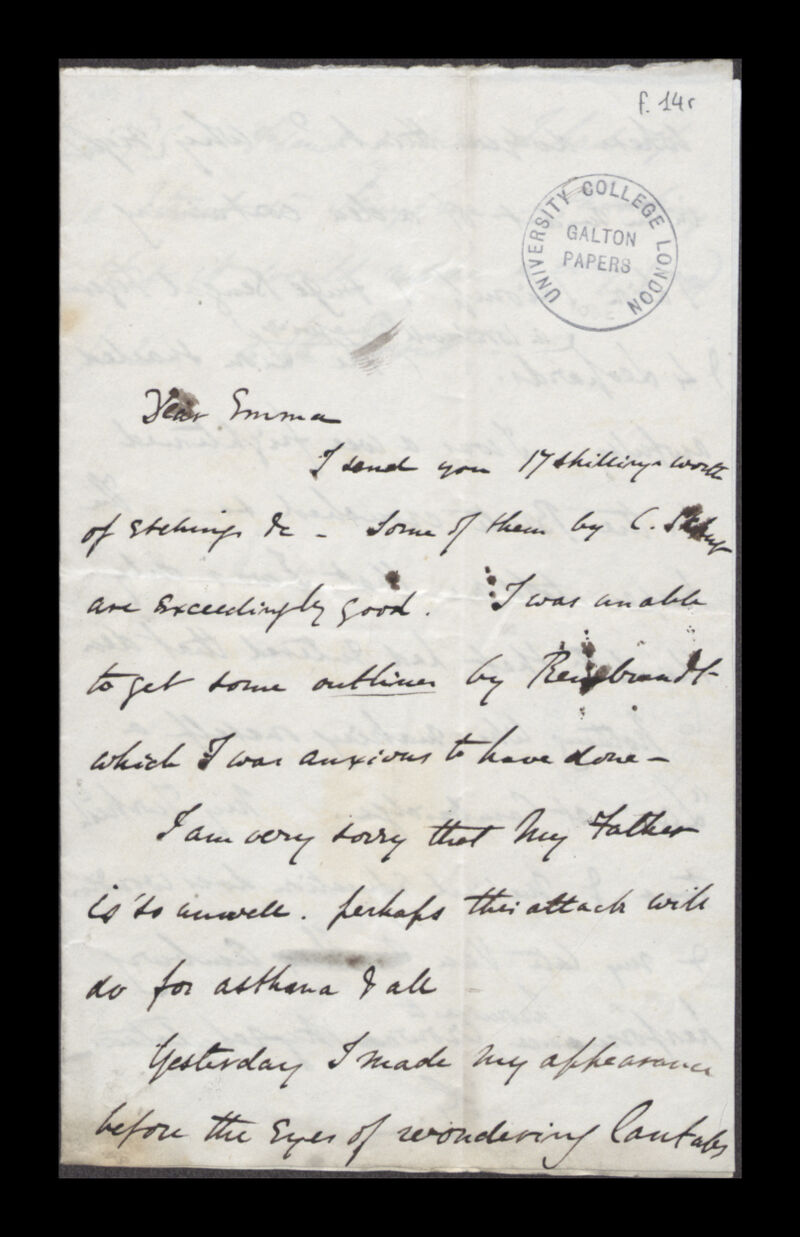 f. 14r
UNIVERSITY COLLEGE LONDON
GALTON
PAPERS
Dear Emma
I send you 17 shillings worth
of etchings &c - Some of them by C.
are exceedingly good. I was unable
to get some outlines by Rembrandt
which I was anxious to have done -
I am very sorry that My Father
is so unwell. perhaps this attack will
do for asthma & all
Yesterday I made my appearance
before the Eyes of wondering Cantabs